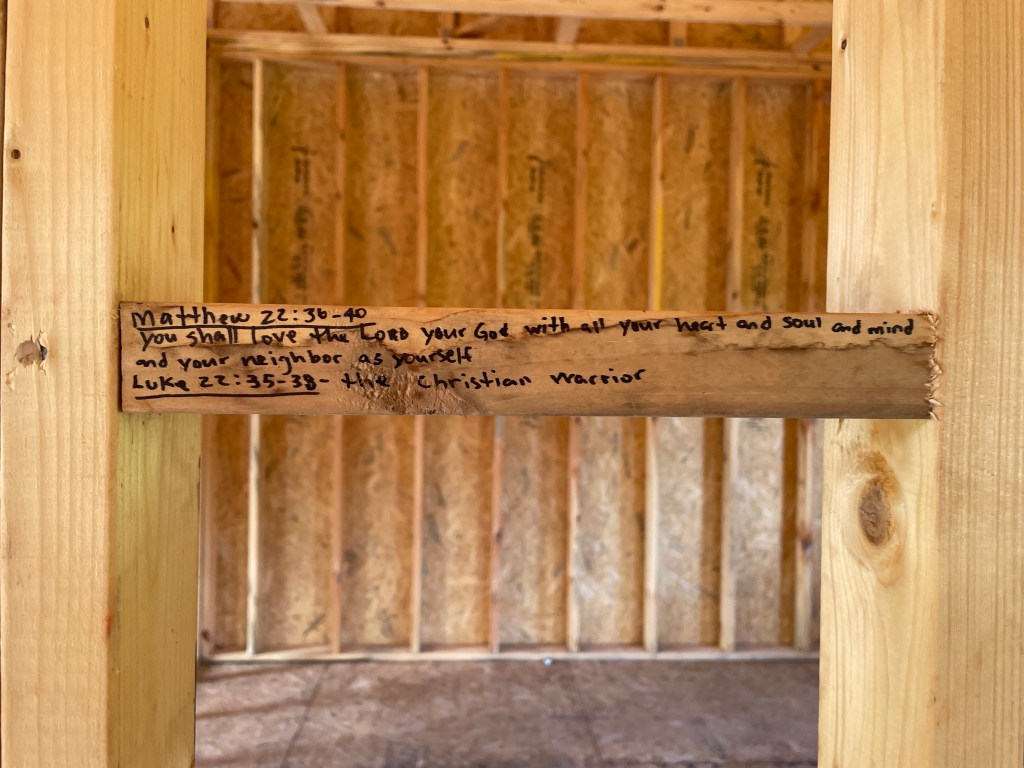 Matthew 22:36-40
You shall love the LORD your God with all your heart and soul and mind
and your neighbor as yourself
Luke 22:35-38- the Christian warrior